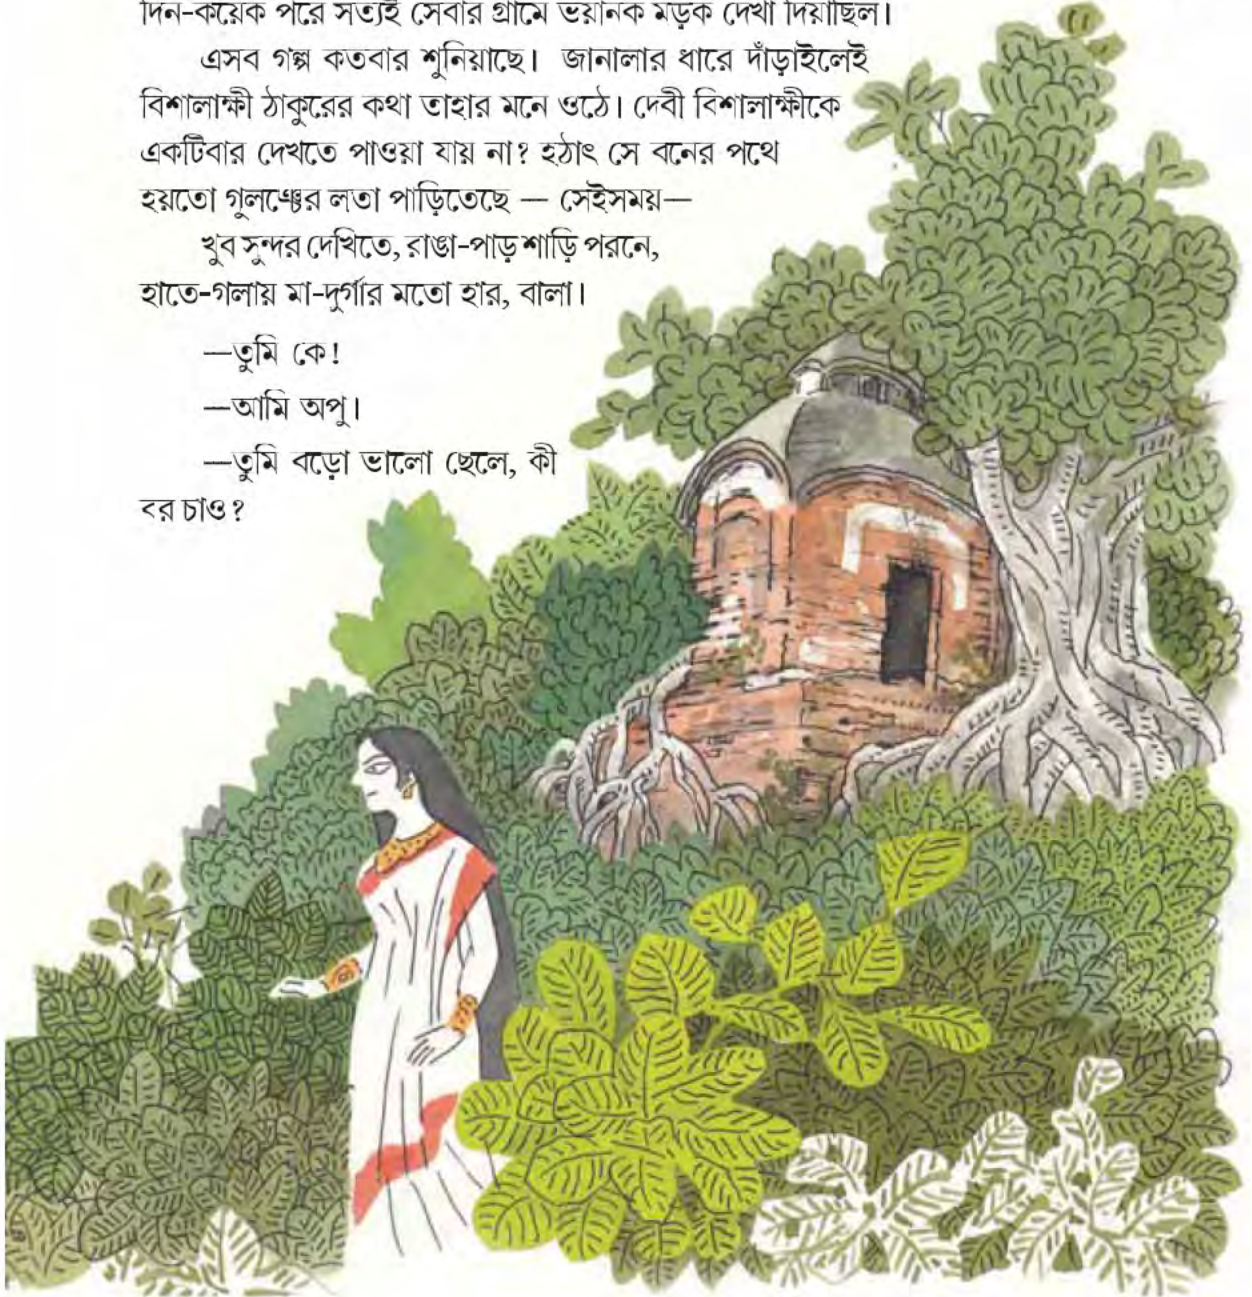 দিন-কয়েক পরে সত্যই সেবার গ্রামে ভয়ানক মড়ক দেখা দিয়াছিল।
এসব গল্প কতবার শুনিয়াছে। জানালার ধারে দাঁড়াইলেই
বিশালাক্ষী ঠাকুরের কথা তাহার মনে ওঠে। দেবী বিশালাক্ষীকে
একটিবার দেখতে পাওয়া যায় না? হঠাৎ সে বনের পথে
হয়তো গুলঞ্চের লতা পাড়িতেছে — সেইসময়—
খুব সুন্দর দেখিতে, রাঙা-পাড় শাড়ি পরনে,
হাতে-গলায় মা-দুর্গার মতো হার, বালা।
—তুমি কে!
—আমি অপু।
—তুমি বড়ো ভালো ছেলে, কী
বর চাও?